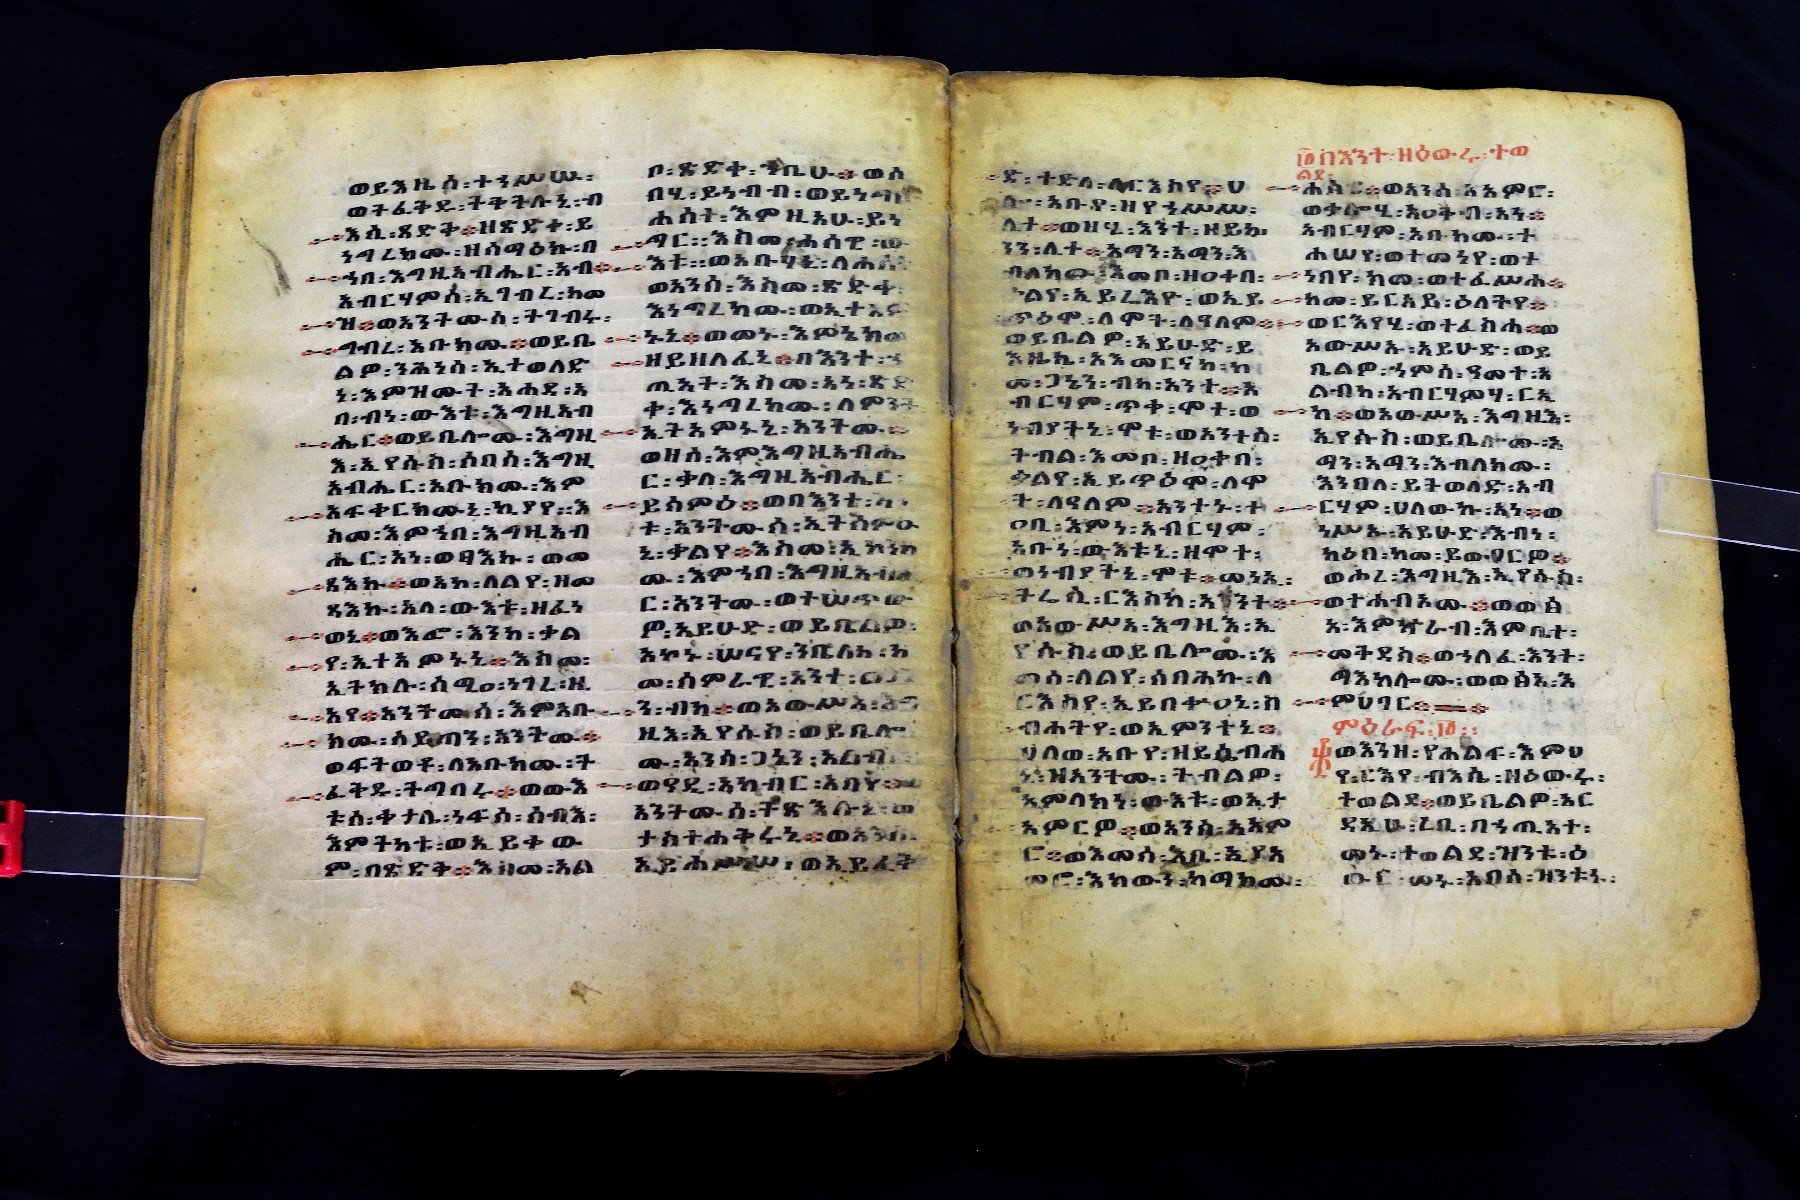 ወይእዜሰ፡ተኀሥሡ፡
ወትፈትዱ፡ትቅትሉኒ፡ብ
እሲ፡ጻድቅ፨ዘጽድቀ፡ይ
ነግረክሙ፡ዘሰማዕኩ፡በ
ኀበ፡እግዚአብሔር፡አብ፨
አብርሃምሰ፡ኢገብረ፡ከመ
ዝ፨ወአንትሙሰ፡ትገብሩ፡
ግብረ፡አቡክሙ፨ወይቤ
ልዎ፡ንሕነሰ፡ኢተወለድ
ነ፡እምዝሙት፡አሐደ፡አ
በ፡ብነ፡ውእቱ፡እግዚአብ
ሔር፨ወይቤሎሙ፡እግዚ
እ፡ኢየሱስ፡ሶበሰ፡እግዚ
አብሔር፡አቡክሙ፡እም
አፍቀርክሙኒ፡ኪያየ፡፡እ
ስመ፡እምኀበ፡እግዚአብ
ሔር፡አነ፡ወፃእኩ፡ወመ
ጻእኩ፨ወአኮ፡ለልየ፡ዘመ
ጻእኩ፡አላ፡ውእቱ፡ዘፈነ
ወኒ፨ወእፎ፡እንከ፡ቃል
የ፡ኢተአምኑኒ፨እስመ፡
ኢትክሉ፡ሰሚዐ፡ነገረ፡ዚ
አየ፨አንትሙሰ፡እምአቡ
ክሙ፡ሰይጣን፡አንትሙ፨
ወፍትወቶ፡ለአቡክሙ፡ት
ፈትዱ፡ትግበሩ፨ወውእ
ቱሰ፡ቀታሌ፡ነፍሰ፡ሰብእ፡
እምትካቱ፡ወኢይቀው
ም፡በጽድቅ፨እስመ፡አል
ቦ፡ጽድቀ፡ኀቤሁ፨ወሰ
በሂ፡ይነብብ፡ወይነግር
ሐሰተ፡እምዚአሁ፡ይነ
ግር፡፡እስመ፡ሐሰዊ፡ው
እቱ፡፡ወአቡሃኒ፡ለሐሰት
ወአንሰ፡እስመ፡ጽድቀ፡
እነግረክሙ፡ወኢተአም
ኑኒ፨ወመኑ፡እምኔክሙ
ዘይዘለፈኒ፨በእንተ፡ኀ
ጢአት፡እስመ፡አነ፡ጽድ
ቀ፡እነግረክሙ፡ለምንት
ኢትአምኑኒ፡አንትሙ፨
ወዘሰ፡እምእግዚአብሔ
ር፡ቃለ፡እግዚአብሔር፡
ይሰምዕ፨ወበእንተ፡ዝን
ቱ፡አንትሙሰ፡ኢትሰምዑ
ኒ፡ቃልየ፨እስመ፡ኢኮንክ
ሙ፡እምኀበ፡እግዚአብሔ
ር፡አንትሙ፡ወተሠጥው
ዎ፡አይሁድ፡ወይቤልዎ፡
አኮኑ፡ሠናየ፡ንቤለከ፡ከ
መ፡ሰምራዊ፡አንተ፡ወጋኔ
ን፡ብከ፨ወአውሥአ፡እግ
ዚእ፡ኢየሱስ፡ወይቤሎ
ሙ፡አንሰ፡ጋኔን፡አልብየ
ወዳዲ፡አከብር፡አባየ፨ወ
አንትሙሰ፡ትጽእሉኒ፡ወ
ታስተሐቅሩኒ፨ወአንሰ፡
ኢይሐሥሥ፡ወኢይፈት
ድ፡ተድላ፡ለርእስየ፨ሀ
ሎ፡አቡየ፡ዘየኀሥሥ፡
ሊተ፨ወዘሂ፡እንተ፡ዘይኴ
ንን፡ሊተ፨አማን፡አማን፡እ
ብለክሙ፡እመቦ፡ዘዐቀበ፡
ቃልየ፡ኢይሬእዮ፡ወኢይ
ጥዕሞ፡ለሞት፡ለዓለም፨
ወይቤልዎ፡አይሁድ፡ይ
እዜኬ፡አእመርናከ፡ከ
መ፡ጋኔን፡ብከ፡አንተ፨አ
ብርሃም፡ጥቀ፡ሞተ፡ወ
ነብያትኒ፡ሞቱ፡ወአንተሰ፡
ትብል፡እመቦ፡ዘዐቀበ፡
ቃልየ፡ኢይጥዕሞ፡ለሞ
ት፡ለዓለም፨አንተኑ፡ተ
ዐቢ፡እምነ፡አብርሃም፡
አቡነ፡ውእቱኒ፡ዘሞተ፡
ወነብያትኒ፡ሞቱ፨መነኢ፡
ትሬሲ፡ርእስከ፡አንተ፨
ወአውሥአ፡እግዚእ፡ኢ
የሱስ፡ወይቤሎሙ፡እ
መሰ፡ለልየ፡ሰባሕኩ፡ለ
ርእስየ፡ኢይበቍዐኒ፡ስ
ብሐትየ፡ወኢምንተኒ፨
ሀለወ፡አቡየ፡ዘይሴብሐ
ኒ፡ዘአንትሙ፡ትብልዎ፡
አምላክነ፡ውእቱ፡ወኢታ
አምርዎ፨ወአንሰ፡አአም
ሮ፡ወእመሰ፡እቤ፡ኢያአ
ምሮ፡እከውን፡ከማክሙ፡
፲፬በእንተ፡ዘዕውሩ፡ተወ
ልደ፡
ሐሳር፨ወአንሰ፡አአምሮ፡
ወቃሎሂ፡አዐቅብ፡አነ፨
አብርሃም፡አቡክሙ፡ተ
ሐሠየ፡ወተመነየ፡ወተ
ነበየ፡ከመ፡ወተፈሥሐ፨
ከመ፡ይርአይ፡ዕለትየ፨
ወርእየሂ፡ወተፈስሐ፨ወ
አውሥኡ፡አይሁድ፡ወይ
ቤልዎ፡ኀምሳ፡ዓመተ፡አ
ልብከ፡አብርሃምሃ፡ርኢ
ከ፨ወአውሥአ፡እግዚእ፡
ኢየሱስ፡ወይቤሎሙ፡አ
ማን፡አማን፡እብለክሙ፡
እንበለ፡ይትወለድ፡አብ
ርሃም፡ሀለውኩ፡አነ፨ወ
ነሥኡ፡አይሁድ፡እብነ፡
ከዕበ፡ከመ፡ይወግርዎ፨
ወሖረ፡እግዚእ፡ኢየሱስ፡
ወተሐብአሙ፨ወወፅ
አ፡እምኵራብ፡እምቤተ፡
መትደስ፨ወኀለፈ፡እንተ፡
ማእከሎሙ፡ወወፅአ፡እ
ምህገር፨
ምዕራፍ፡፲፬፡፡
ወእንዘ፡የሐልፍ፡እምህ
የ፡ርእየ፡ብእሴ፡ዘዕውሩ፡
ተወልደ፨ወይቤልዎ፡አር
ዳኢሁ፡ረቢ፡በኀጢአተ፡
መኑ፡ተወልደ፡ዝንቱ፡ዕ
ውር፡መኑ፡አበሰ፡ዝንቱኑ፡